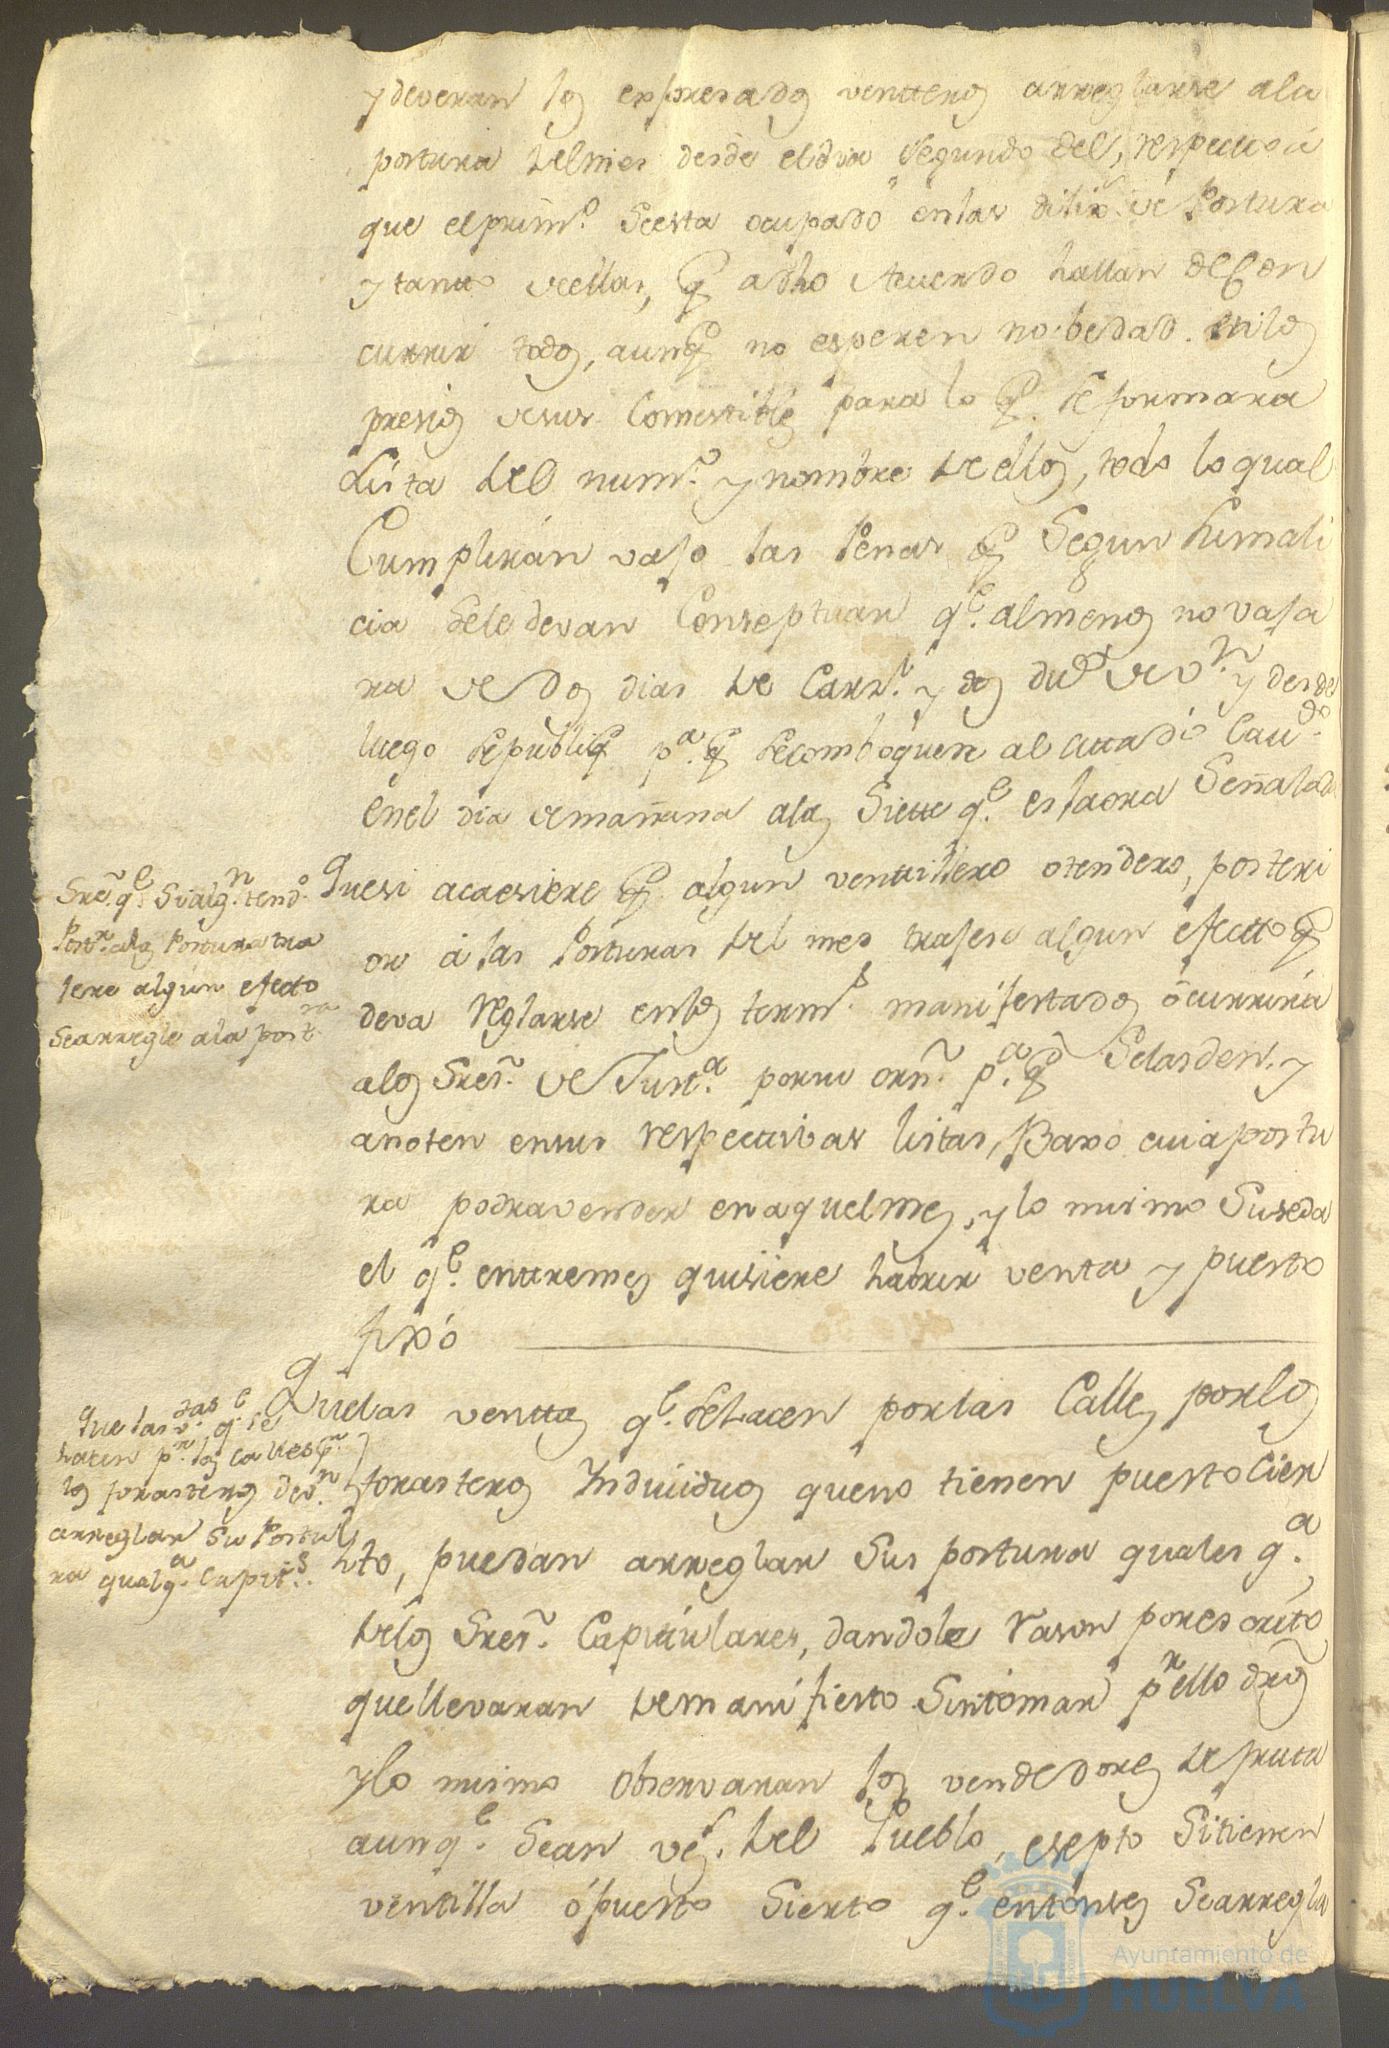 y deveran los expresados ventteros arreglarse ala
postura del mes desde el dia segundo del, respecto a
que el prim.º se esta ocupado en las dilix.s de Postura
y tanto de ellas, q.e a dho Acuerdo hallan de Con
currir todos, aunq.e no esperen no bedad en los
presios de sus Comestibles para lo q.e se formara
Lista del num.º y nombre de ellos, todo lo qual
Cumplirán vajo las Penas q.e Segun su mali
cia se le devan Conseptuar q.e al menos no vaja
ra de dos dias de Carz.l y dos duc.s de v.n y desde
luego se publiq.e p.a q.e se comboquen al cittado Cav.do
en el dia de mañana alas Siette q.e es la ora Señalada
Sre. q.e si alg.n tend.º
Post.r alas Posturas tra
jere algún efecto
se arregle ala post.ra
Que si acaesiere q.e algun venttillero o tendero, posteri
or á las Posturas del mes trajese algun efectto q.e
deva reglarse en los term.s manifestados ocurrira
alos Sres. de Just.a por su orn. p.a q.e Se las den, y
anoten en sus respecttibas listas, Baxo cuia postu
ra podra vender en aquel mes, y lo mismo Suseda
el q.e entre mes quisiere habrir venta y puesto
fixó
Que las v.tas q.e se
hacen p.r las calles p.r
los forasteros dev.n
arreglar su Postu
ra qualq.a Capit.s
Que las venttas q.e se hacen por las Calles por los
forasteros Yndividuos que no tienen puesto Cier
to, puedan arreglar Sus postura quales q.a
de los Sres. Capitulares, dandole rason por escrito
que llevaran de manifiesto Sin tomar p.r ello dros
y lo mismo observaran los vendedores de fruta
aunq.e Sean vez.s del Pueblo, esepto Si tienen
ventilla ó puesto Sierto q.e entónses Se arregla
Ayuntamiento de
HUELVA